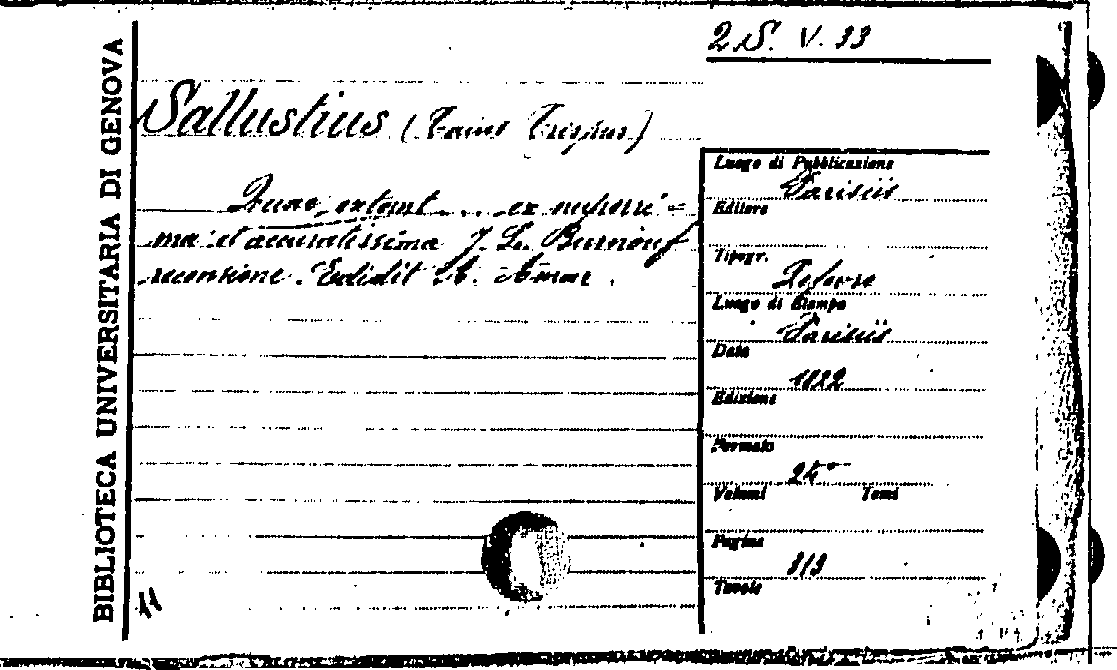 2. S. V. 33
BIBLIOTECA UNIVERSITARIA DI GENOVA
Sallustius (Caius Crispus)
Quae extant... ex nuperri=
ma et accuratissima J. L. Burnouf
recensione. Edidit A. Amar.
Luogo di Pubblicazione
Parisiis
Editore
Tipogr.
Lefevre
Luogo di Stampa
Parisiis
Data
1822
Edizione
Formato
24°
Volumi Tomi
Pagine
313
Tavole
11